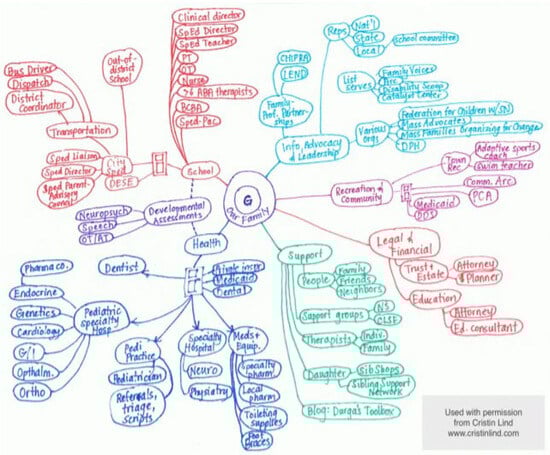 Clinical director
SpEd Director
SpEd Teacher
PT
OT
Nurse
>6 ABA therapists
BCBA
Sped-Pac
School
Out-of-
district
School
Bus Driver
Dispatch
District
Coordinator
Transportation
City
Sped
Sped Liaison
Sped Director
Sped Parent
Advisory
Council
DESE
Reps
Nat'l
State
Local
school committee
CHIPRA
LEND
Family
Prof. Partner-
ships
List
serves
Family Voices
Arc
Disability Scoop
Catalyst Center
Various
Orgs
Federation for Children w/SN
Mass Advocates
Mass Families Organizing for Change
DPH
Info, Advocacy
& Leadership
G
Our Family
Recreation &
Community
Town
Rec
Adaptive sports
coach
Swim teacher
Comm. Arc
PCA
Medicaid
DDS
Legal &
Financial
Trust +
Estate
Attorney
Planner
Education
Attorney
Ed. consultant
Support
People
Family
Friends
Neighbors
Support groups
NS
CLSE
Therapists
Indiv.
Family
Daughter
SibShops
Sibling Support
Network
Blog: Durga's Toolbox
Developmental
Assessments
Neuropsych
Speech
OT/AT
Health
Private insur
Medicaid
Dental
Dentist
Pediatric
specialty
Hosp
Pharma co.
Endocrine
Genetics
Cardiology
G/I
Opthalm.
Ortho
Pedi
Practice
Pediatrician
Referrals,
triage,
scripts
Specialty
Hospital
Neuro
Physiatry
Meds +
Equip.
Specialty
pharm
Local
pharm
Toileting
supplies
Foot
braces
Used with permission
from Cristin Lind
www.cristinlind.com